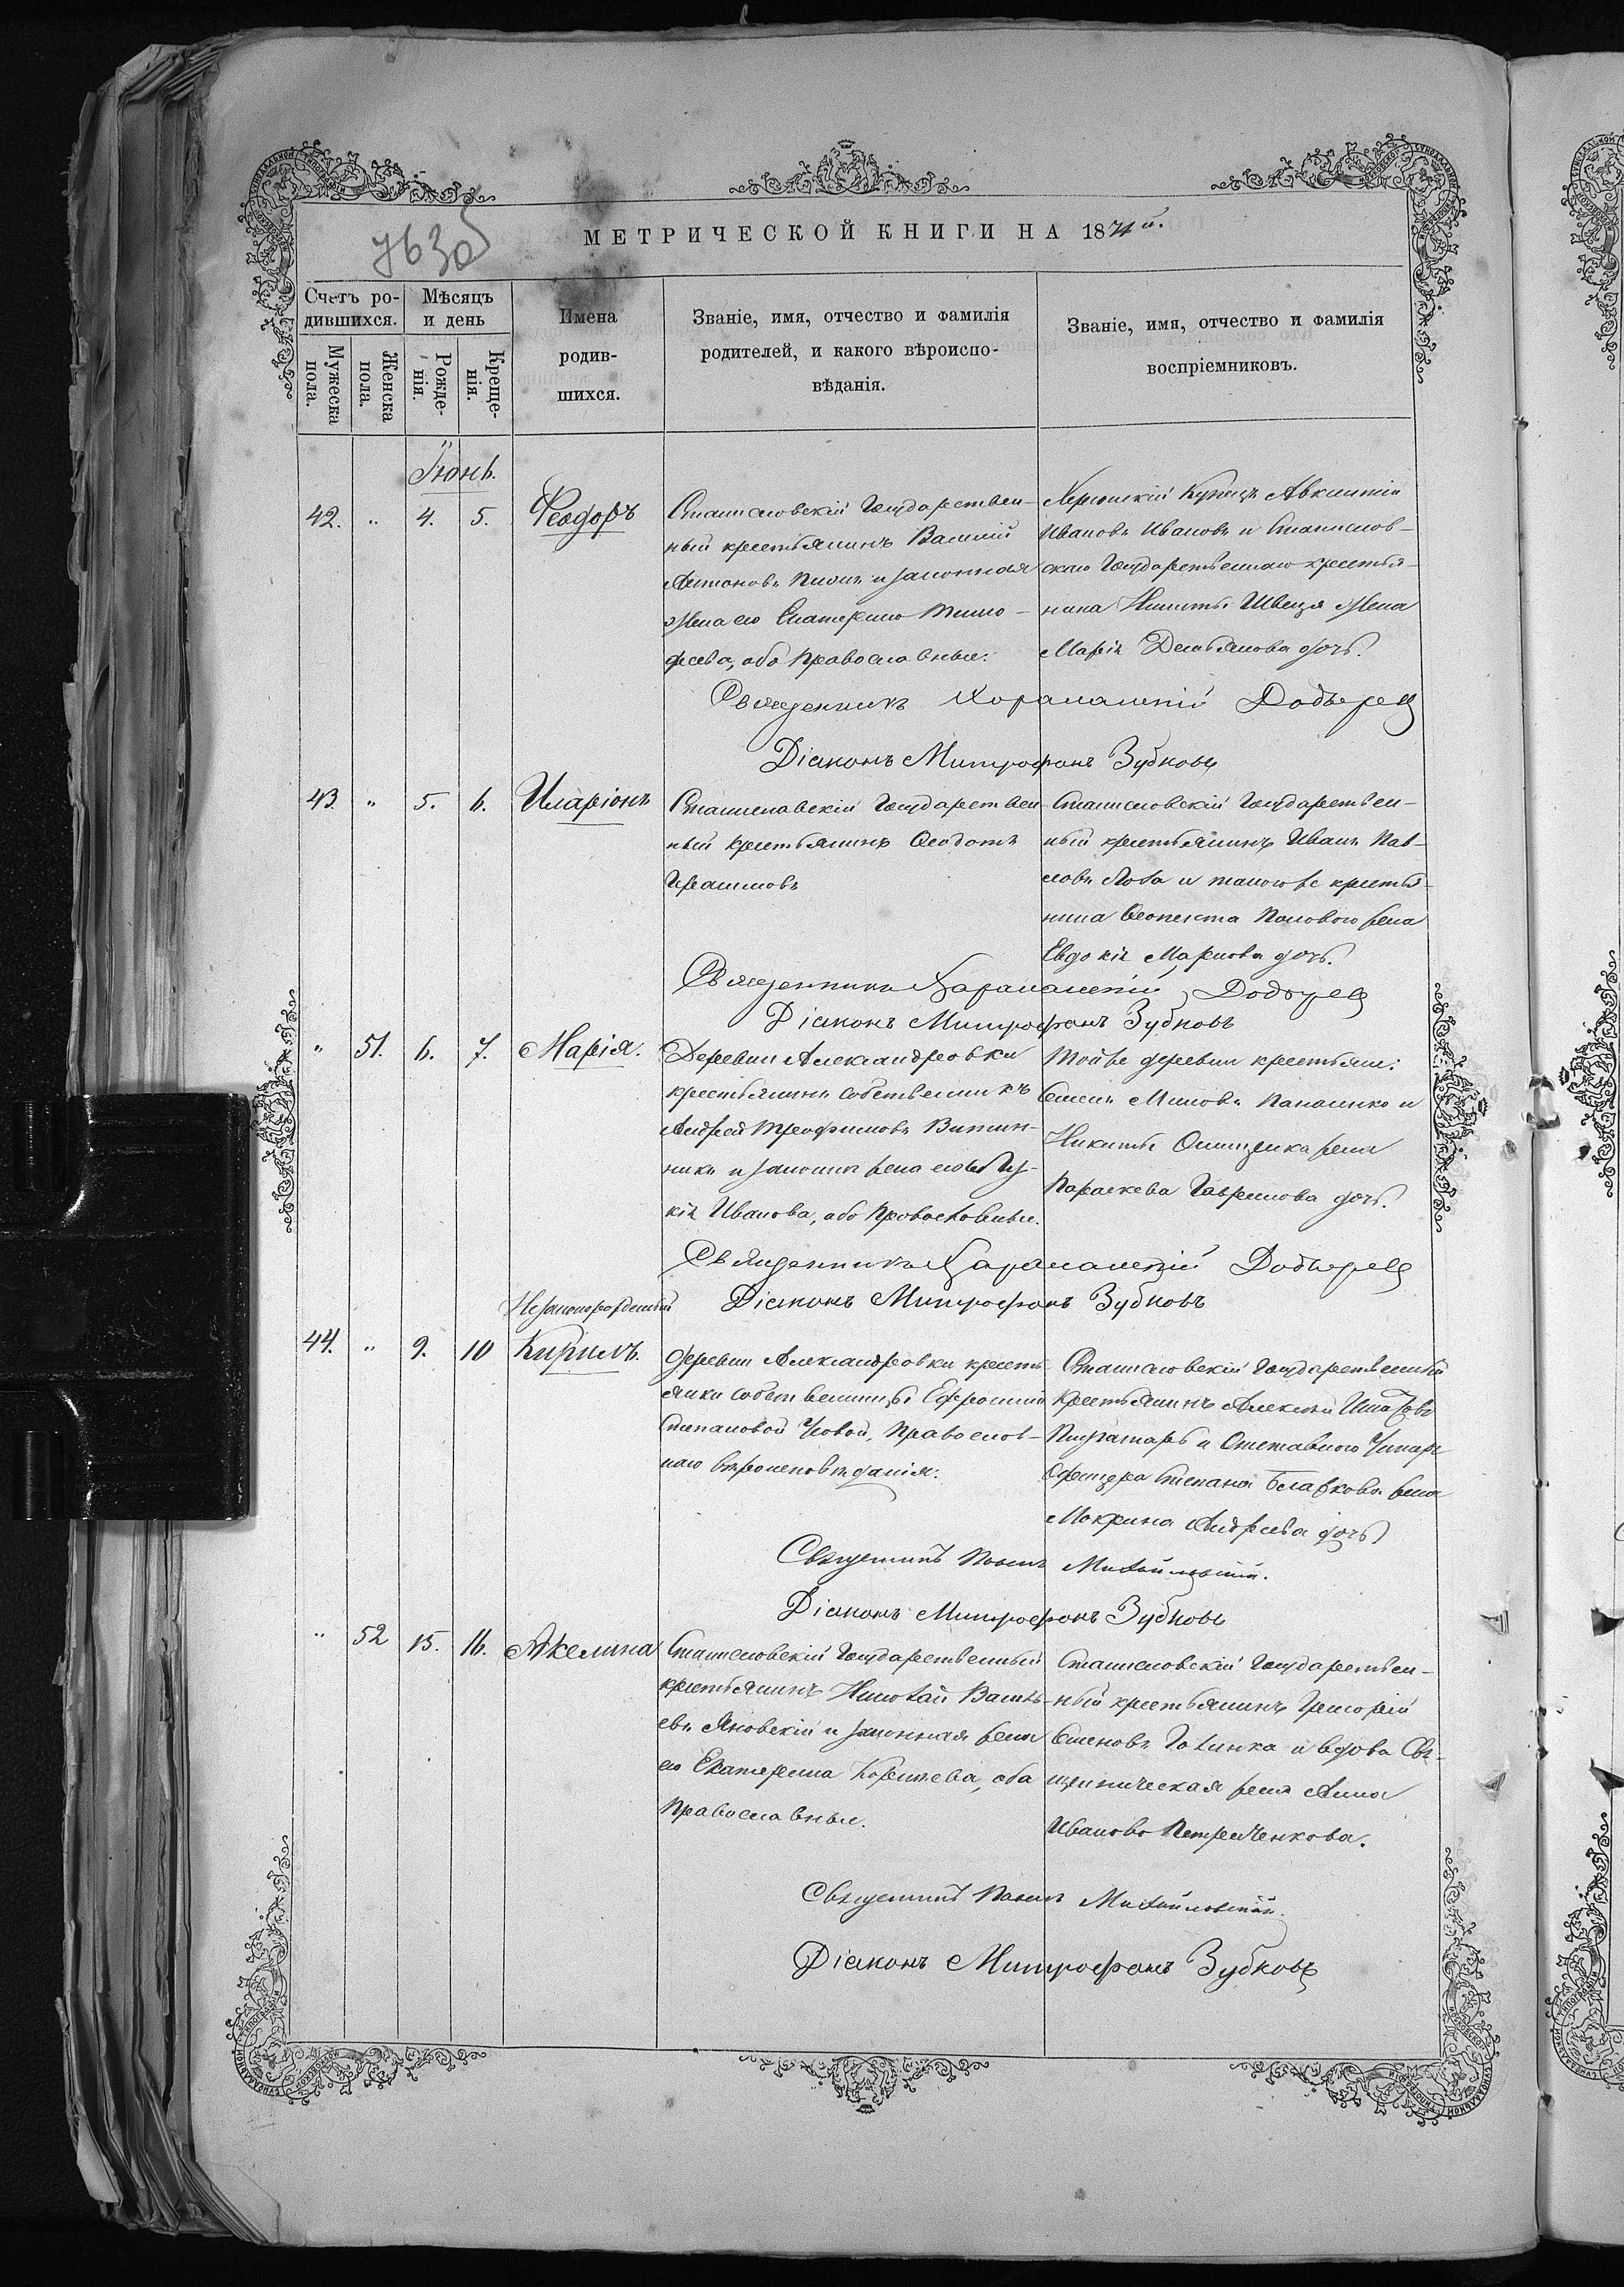 763об
МЕТРИЧЕСКОЙ КНИГИ НА 1871й.
Счетъ ро-
дившихся.
Мѣсяцъ
и день
Мужеска
пола.
Женска
пола.
Рожде-
нія.
Креще-
нія.
Имена
родив-
шихся.
Званіе, имя, отчество и фамилія
родителей, и какого вѣроиспо-
вѣданія.
Званіе, имя, отчество и фамилія
воспріемниковъ.
Іюнь.
42. „ 4. 5. Ѳеодоръ
Станиславскій Государствен-
ный крестьянинъ Василій
Антоновъ и законная
жена его Екатерина Тимо-
феева, оба Православные.
Херсонскій Купецъ Авксентій
Ивановъ Ивановъ и Станислав-
скаго Государственнаго крестья-
нина Никиты Швеца жена
Марія Демьянова дочь.
Священникъ Харалампій
Діаконъ Митрофанъ Зубковъ
43. „ 5. 6. Иларіонъ
Станиславскій Государствен-
ный крестьянинъ Ѳеодотъ
Станиславскій Государствен-
ный крестьянинъ Иванъ Пав-
ловъ Лоза и такого же крестья-
нина Ѳеопемта жена
Евдокія Маркова дочь.
Священникъ Харалампій
Діаконъ Митрофанъ Зубковъ
„ 51. 6. 7. Марія.
Деревни Александровки
крестьянинъ собственникъ
Андрей Трофимовъ Витин-
никъ и законная жена его
Иванова, оба Православные.
Той же деревни крестьян:
Панасенко и
Никиты Онищенка жена
Параскева Гаврилова дочь.
Священникъ Харалампій
Діаконъ Митрофанъ Зубковъ
Незаконорожденный
44. „ 9. 10 Кирилъ.
деревни Александровки кресть-
янки собственницы Ефросиніи
Степановой Чсовой, Православ-
наго вѣроисповѣданія.
Станиславскій Государственный
крестьянинъ Алексѣй Игнатовъ
и Отставного Унтеръ
Офицера Степана жена
Макрина Андреева дочь
Священникъ Павелъ Михайловскій.
Діаконъ Митрофанъ Зубковъ
„ 52 15. 16. Акелина
Станиславскій Государственный
крестьянинъ Николай Василь-
евъ Яновскій и законная жена
его Екатерина Корнѣева, оба
Православные.
Станиславскій Государствен-
ный крестьянинъ Григорій
Семеновъ Галинка и вдова Свя-
щенническая жена Анна
Иванова Петренкова.
Священникъ Павелъ Михайловскій.
Діаконъ Митрофанъ Зубковъ